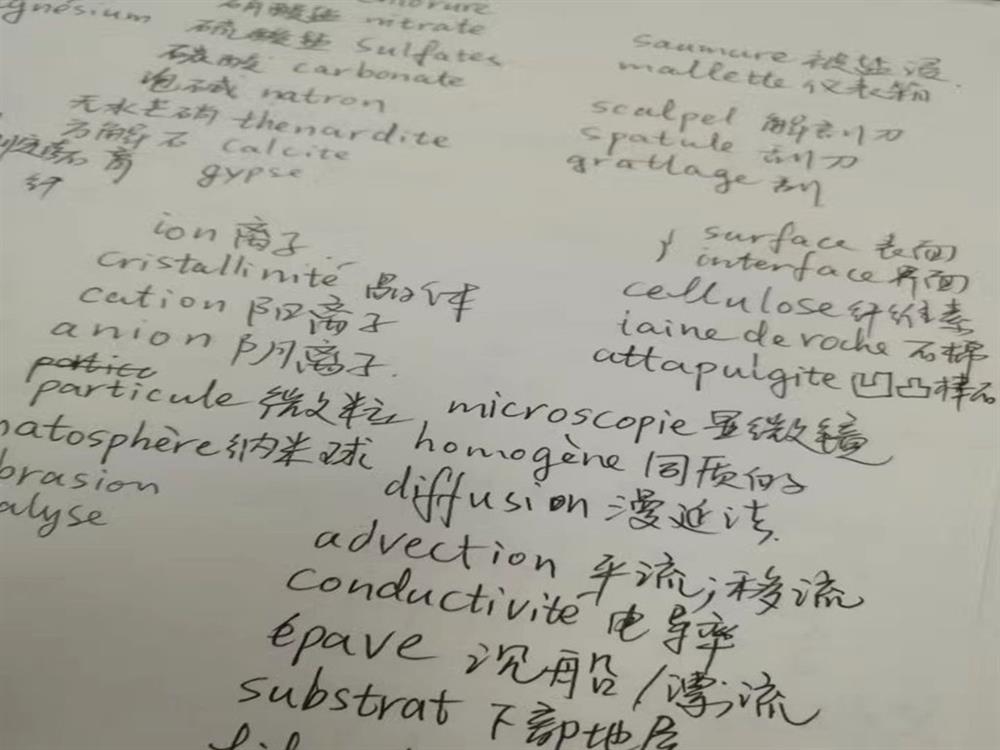 gnésium
硝酸盐 nitrate
硫酸盐 sulfates
碳酸 carbonate
泡碱 natron
无水芒硝 thenardite
方解石 calcite
石膏 gypse
纤
saumure 被盐浸
mallette 仪表箱
scalpel 解剖刀
spatule 刮刀
grattage 刮
surface 表面
interface 界面
cellulose 纤维素
laine de roche 石棉
attapulgite 凹凸棒石
ion 离子
cristallinité 晶体
cation 阳离子
anion 阴离子
particule 微粒 microscopie 显微镜
natosphère 纳米球 homogène 同质的
brasion
diffusion 漫延法
alyse
advection 平流;移流
conductivité 电导率
épave 沉船/漂流
substrat 下部地层